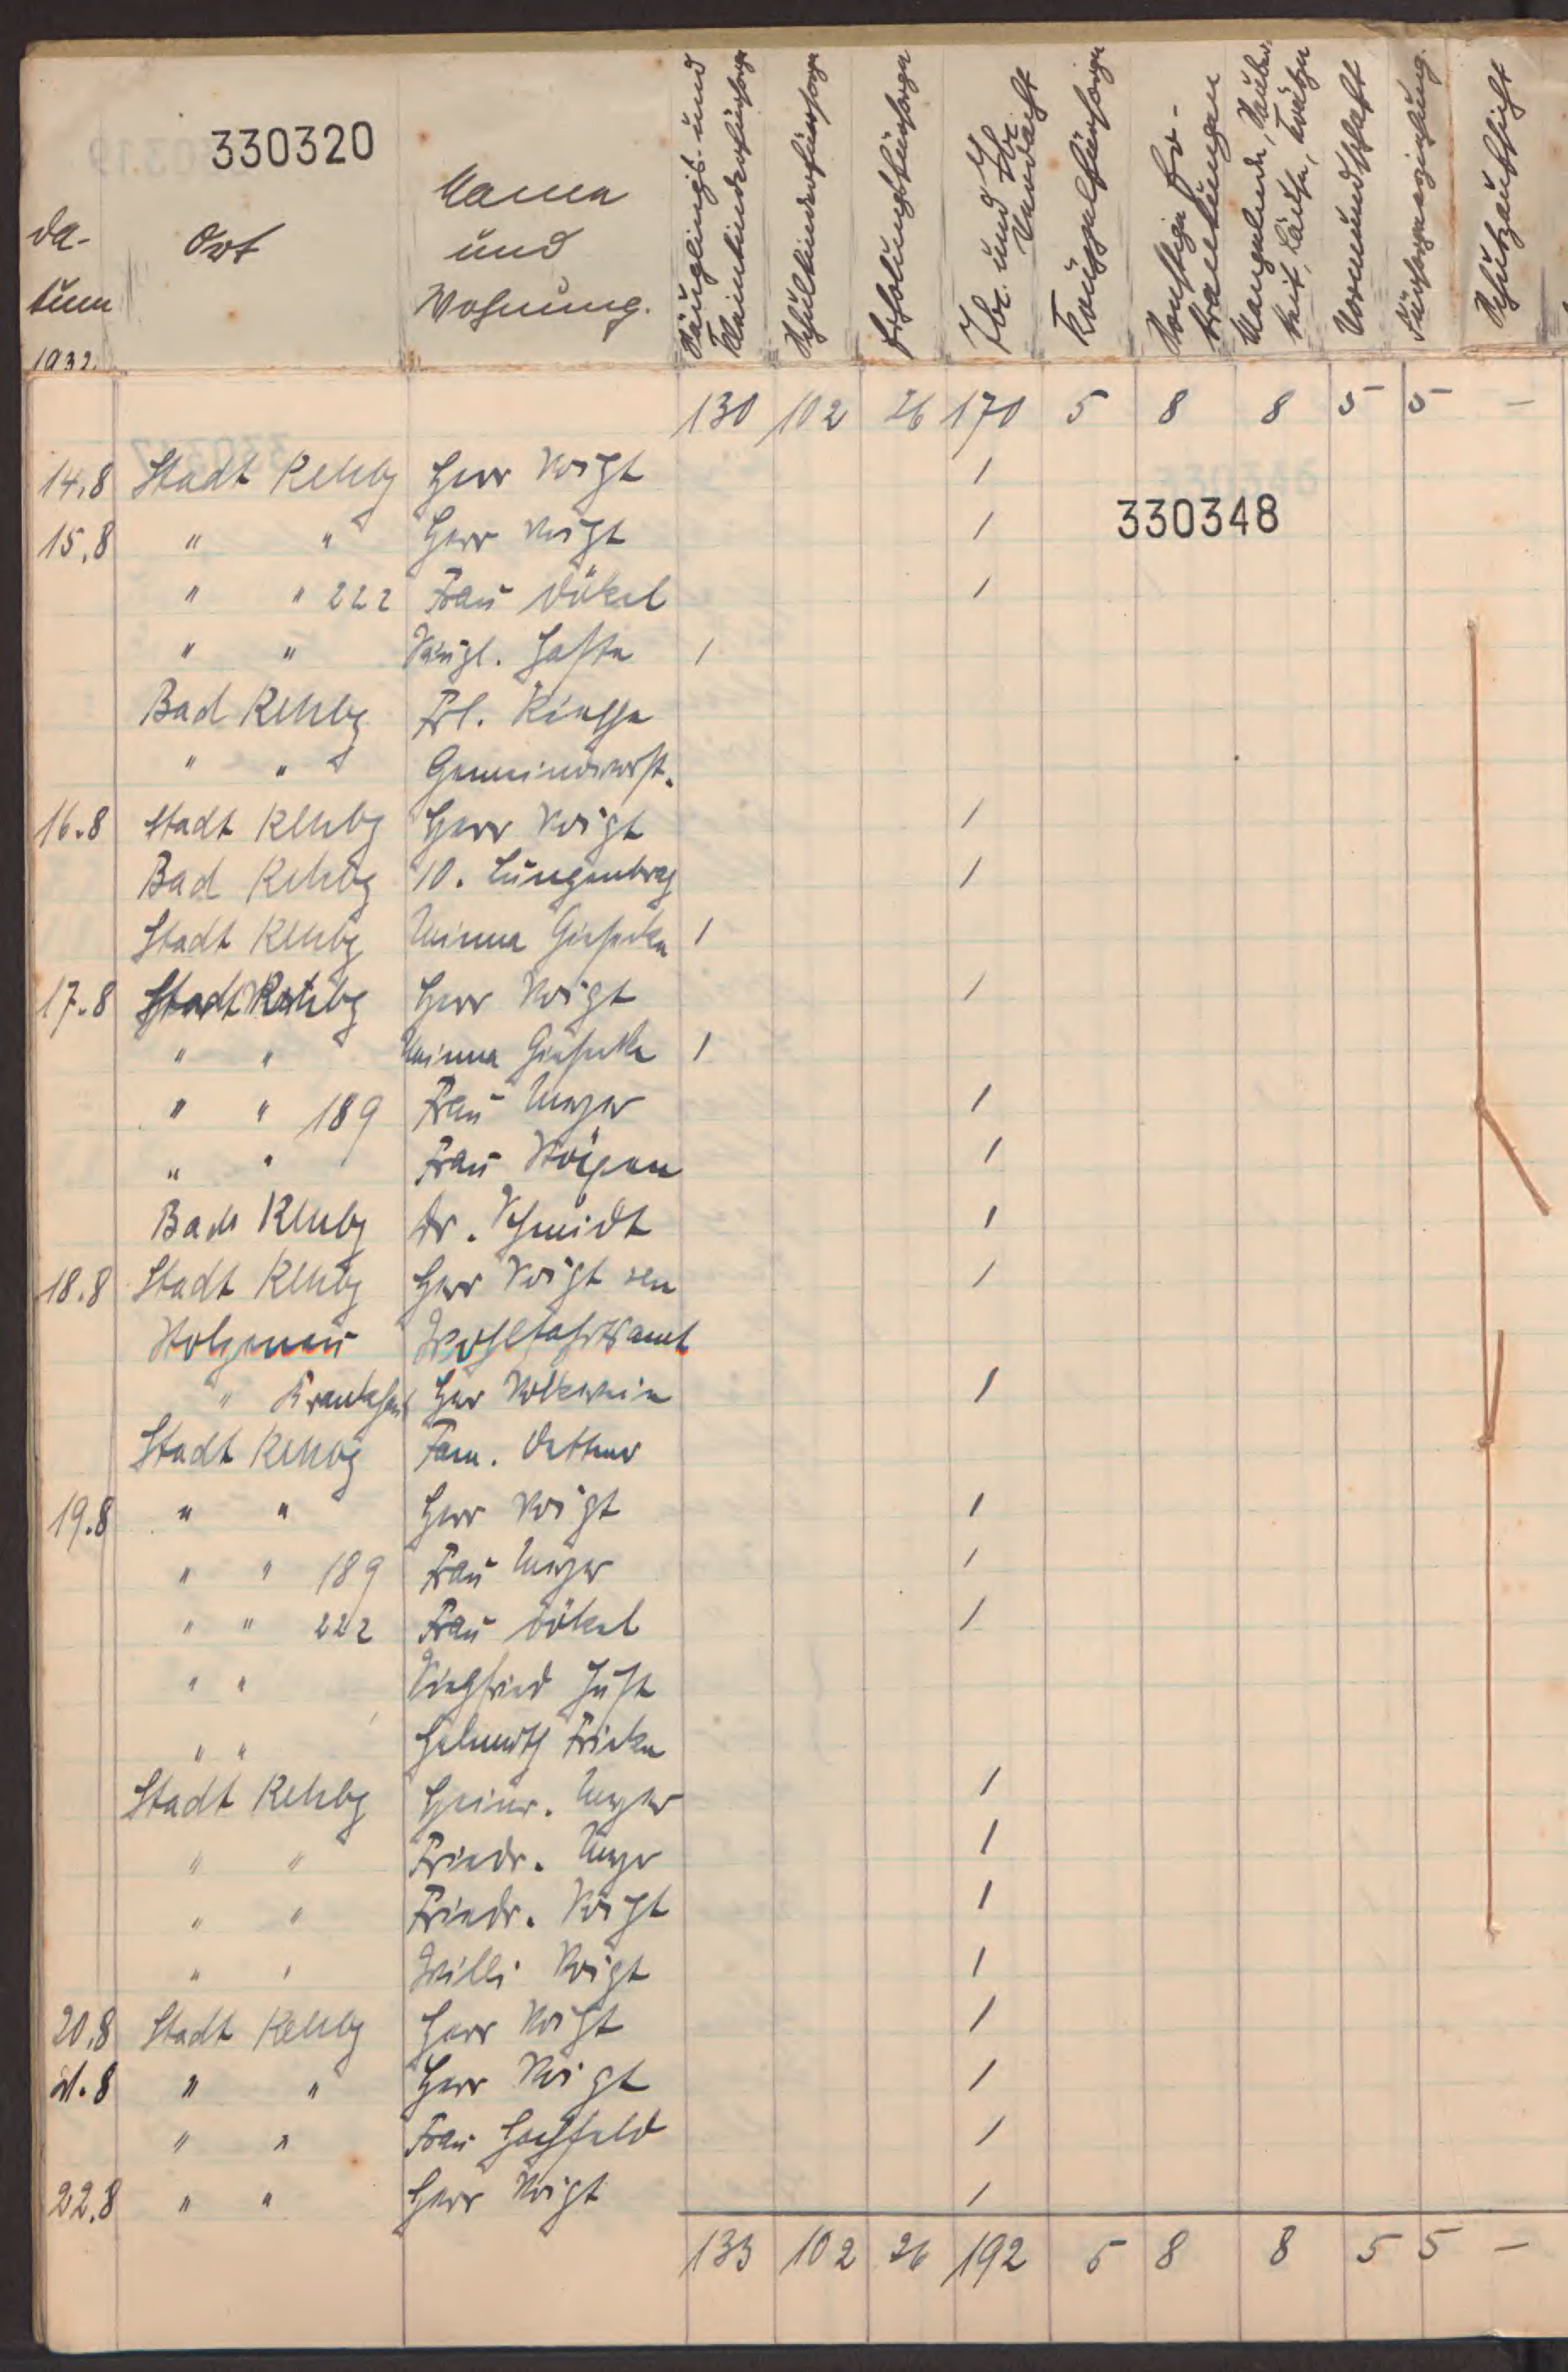 330320
Da-
tum
1932.
Ort
Name
und
Wohnung.
Säuglings- und
Kleinkinderfürsorge
Schulkinderfürsorge
Erholungsfürsorge
Tbc. und Tbc.
Verdacht
Krüppelfürsorge
Sonstige Er-
krankungen
Vormundschaft
Fürsorgeerziehung.
Schutzaufsicht
130 102 26 170 5 8 8 5 5 —
14.8 Stadt Rehbg Herr Voigt 1
330348
15.8 " " Herr Voigt 1
" " 222 Frau Dökel 1
" " Säugl. Haste 1
Bad Rehbg Frl. Kiesse
" " Gemeindevorst.
16.8 Stadt Rehbg Herr Voigt 1
Bad Rehbg 10. Lungenbrg 1
Stadt Rehbg Minna Gieseke 1
17.8 Stadt Rehbg Herr Voigt 1
" " Minna Gieseke 1
" " 189 Frau Meyer 1
" " Frau 1
Bad Rehbg Dr. Schmidt 1
18.8 Stadt Rehbg Herr Voigt sen 1
Stolzenau Wohlfahrtsamt
" Krankhaus Herr Volkwein 1
Stadt Rehbg Fam. Dettmer
19.8 " " Herr Voigt 1
" " 189 Frau Meyer 1
" " 222 Frau Dökel 1
" " Siegfried Just
" " Helmuth Fricke
Stadt Rehbg Heinr. Meyer 1
" " Friedr. Meyer 1
" " Friedr. Voigt 1
" " Willi Voigt 1
20.8 Stadt Rehbg Herr Voigt 1
21.8 " " Herr Voigt 1
" " Frau Hachfeld 1
22.8 " " Herr Voigt 1
133 102 26 192 5 8 8 5 5 —